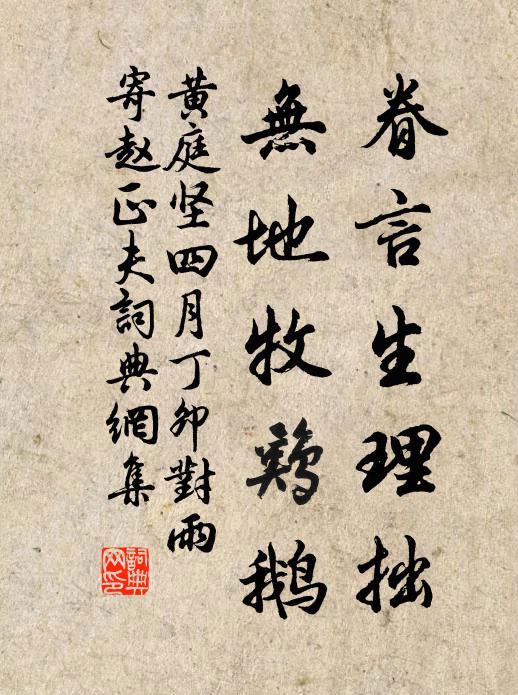 眷言生理拙
無地牧鷄鵝
黄庭坚四月丁卯對雨
寄赵正夫詞典網集
詞典网印